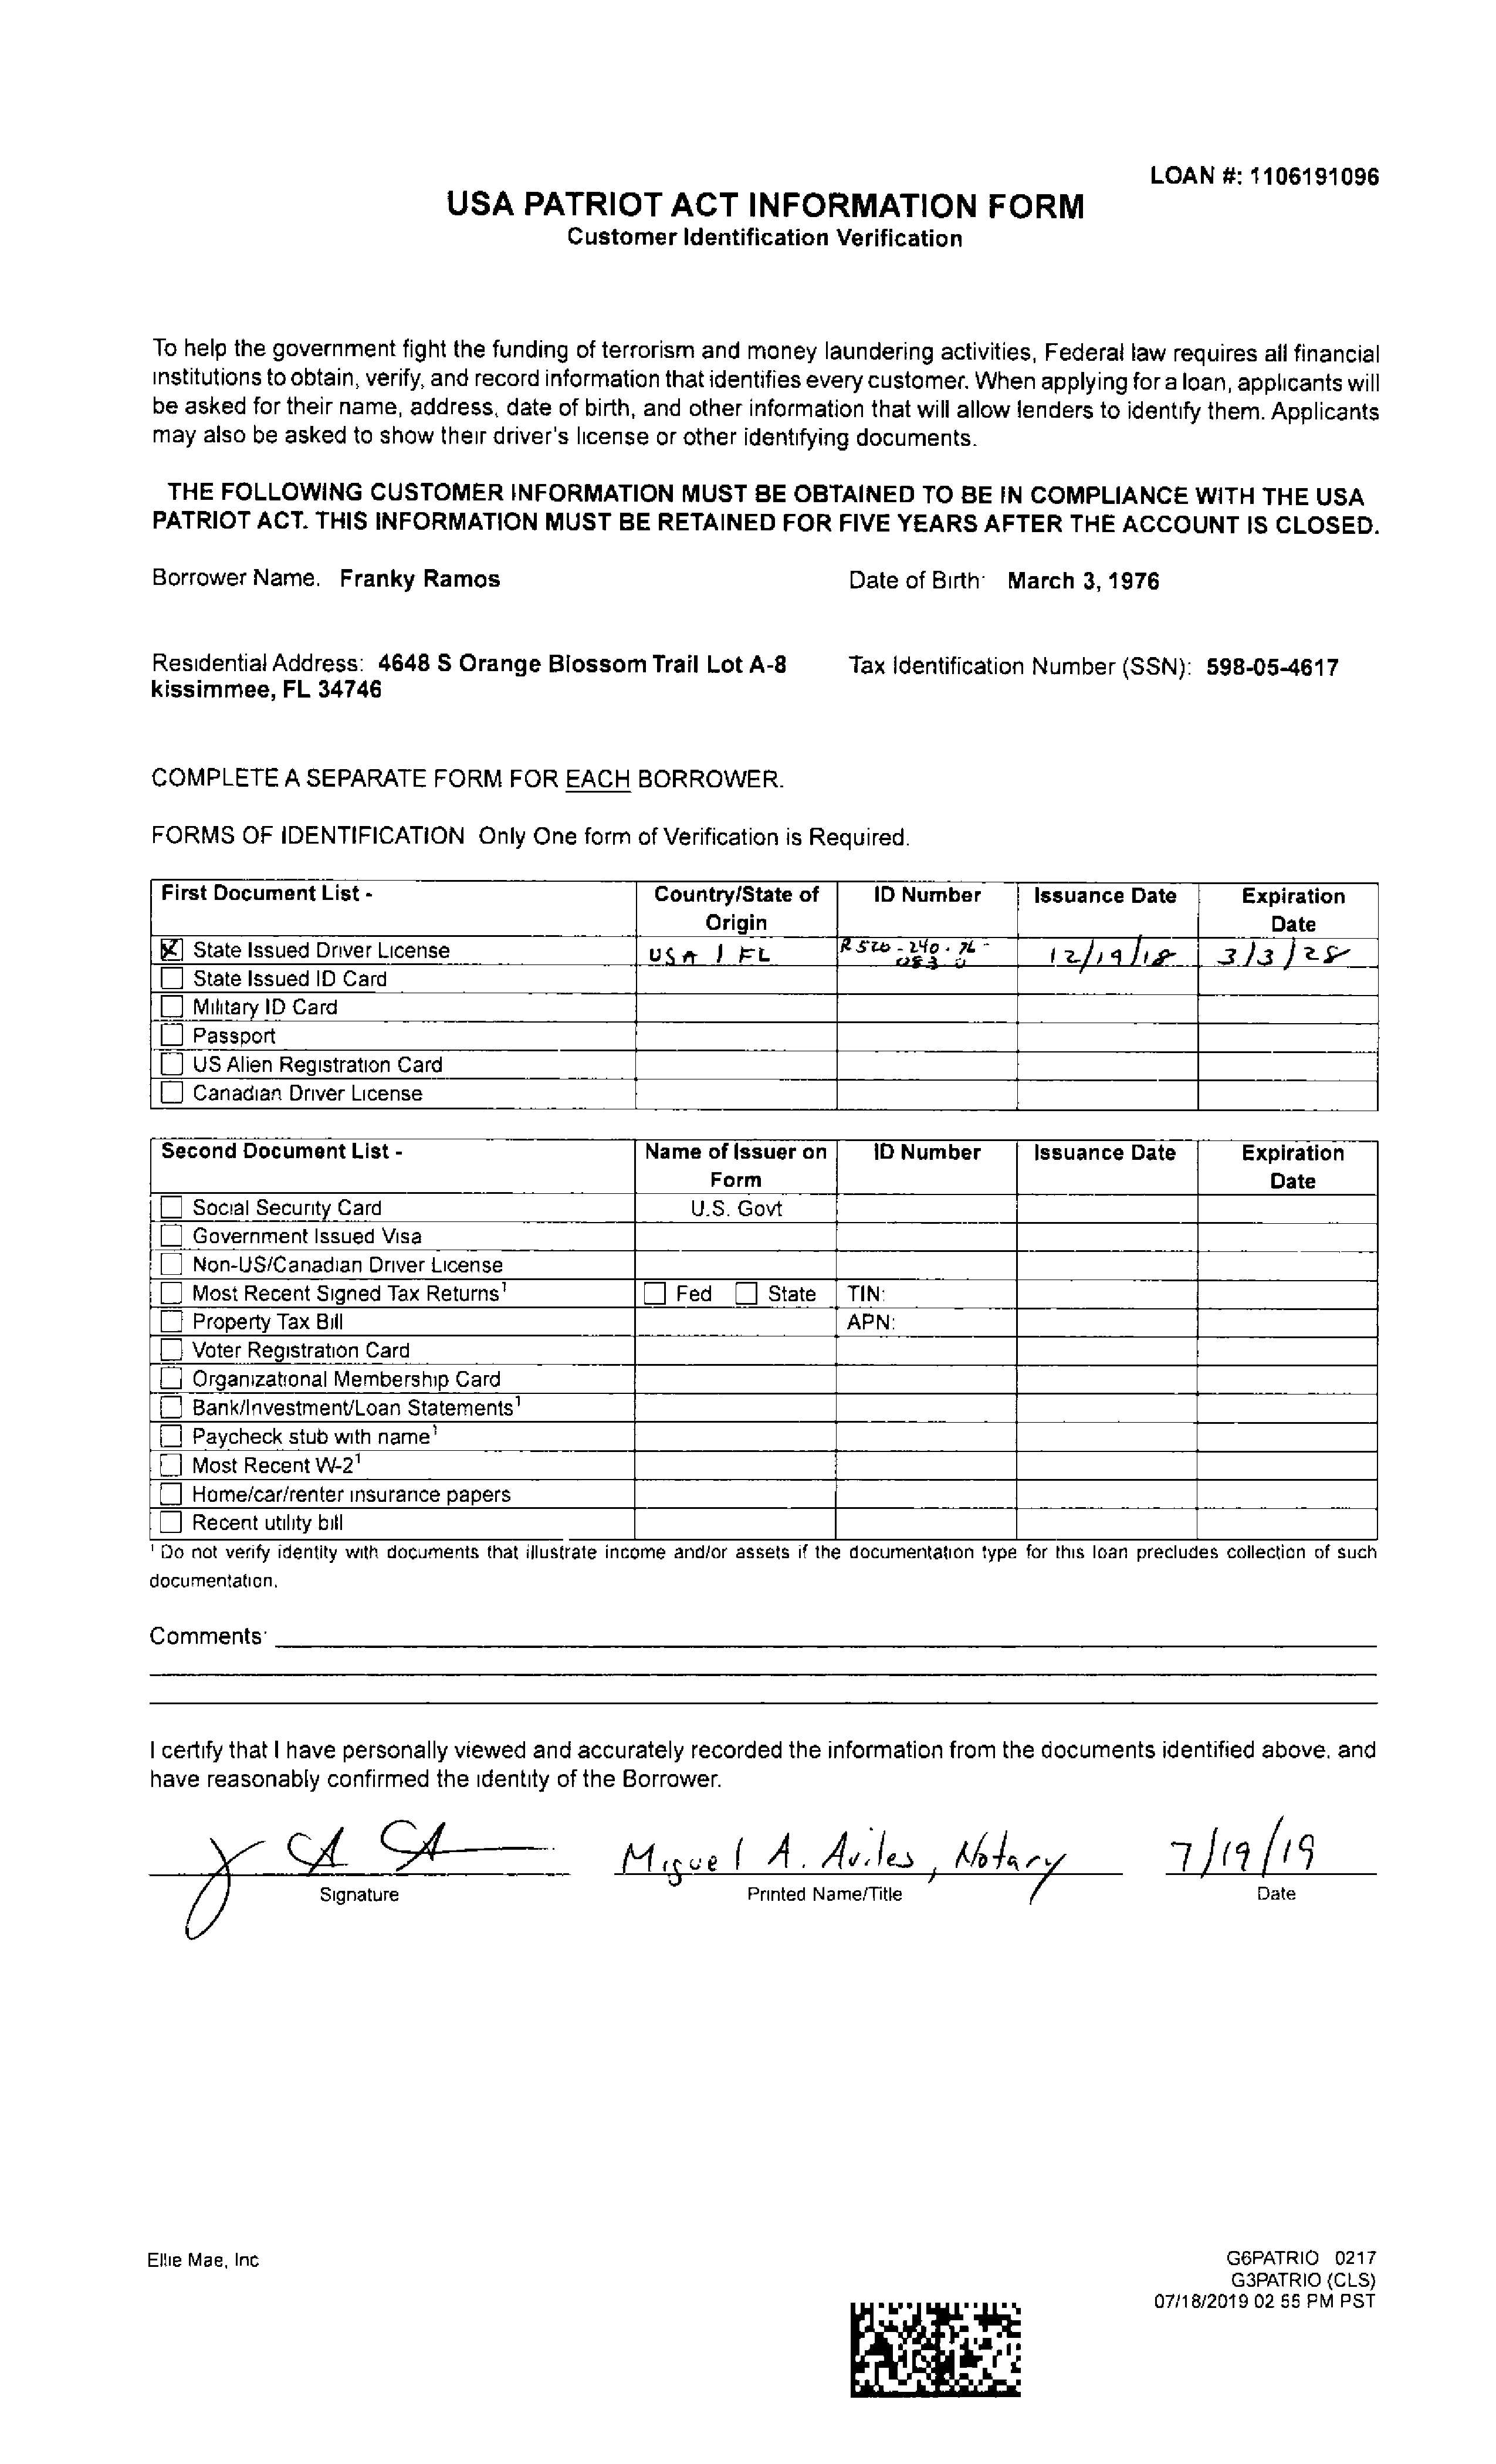 LOAN #: 1106191096
USA PATRIOT ACT INFORMATION FORM
Customer Identification Verification
To help the government fight the funding of terrorism and money laundering activities, Federal law requires all financial
institutions to obtain, verify, and record information that identifies every customer. When applying for a loan, applicants will
be asked for their name, address, date of birth, and other information that will allow lenders to identify them. Applicants
may also be asked to show their driver's license or other identifying documents.
THE FOLLOWING CUSTOMER INFORMATION MUST BE OBTAINED TO BE IN COMPLIANCE WITH THE USA
PATRIOT ACT. THIS INFORMATION MUST BE RETAINED FOR FIVE YEARS AFTER THE ACCOUNT IS CLOSED.
Borrower Name. Franky Ramos Date of Birth: March 3, 1976
Residential Address: 4648 S Orange Blossom Trail Lot A-8 Tax Identification Number (SSN): 598-05-4617
kissimmee, FL 34746
COMPLETE A SEPARATE FORM FOR EACH BORROWER.
FORMS OF IDENTIFICATION Only One form of Verification is Required.
First Document List - Country/State of Origin ID Number Issuance Date Expiration Date
State Issued Driver License USA / FL R520-240-76- 083 0 12/19/18 3/3/28
State Issued ID Card
Military ID Card
Passport
US Alien Registration Card
Canadian Driver License
Second Document List - Name of Issuer on Form ID Number Issuance Date Expiration Date
Social Security Card U.S. Govt
Government Issued Visa
Non-US/Canadian Driver License
Most Recent Signed Tax Returns¹ Fed State TIN:
Property Tax Bill APN:
Voter Registration Card
Organizational Membership Card
Bank/Investment/Loan Statements¹
Paycheck stub with name¹
Most Recent W-2¹
Home/car/renter insurance papers
Recent utility bill
¹ Do not verify identity with documents that illustrate income and/or assets if the documentation type for this loan precludes collection of such
documentation.
Comments:
I certify that I have personally viewed and accurately recorded the information from the documents identified above, and
have reasonably confirmed the identity of the Borrower.
Miguel A. Aviles, Notary 7/19/19
Signature Printed Name/Title Date
Ellie Mae, Inc G6PATRIO 0217
G3PATRIO (CLS)
07/18/2019 02 55 PM PST